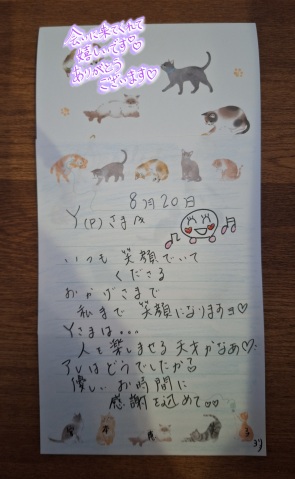 会いに来てくれて
嬉しいです♡
ありがとう
ございます♡
8月20日
Y(P)さまへ
いつも 笑顔でいて
くださる
おかげさまで
私まで 笑顔になります♡
Yさまは...
人を楽しませる 天才かなあ♡
アレはどうでしたか?
優しい お時間に
感謝を込めて♡